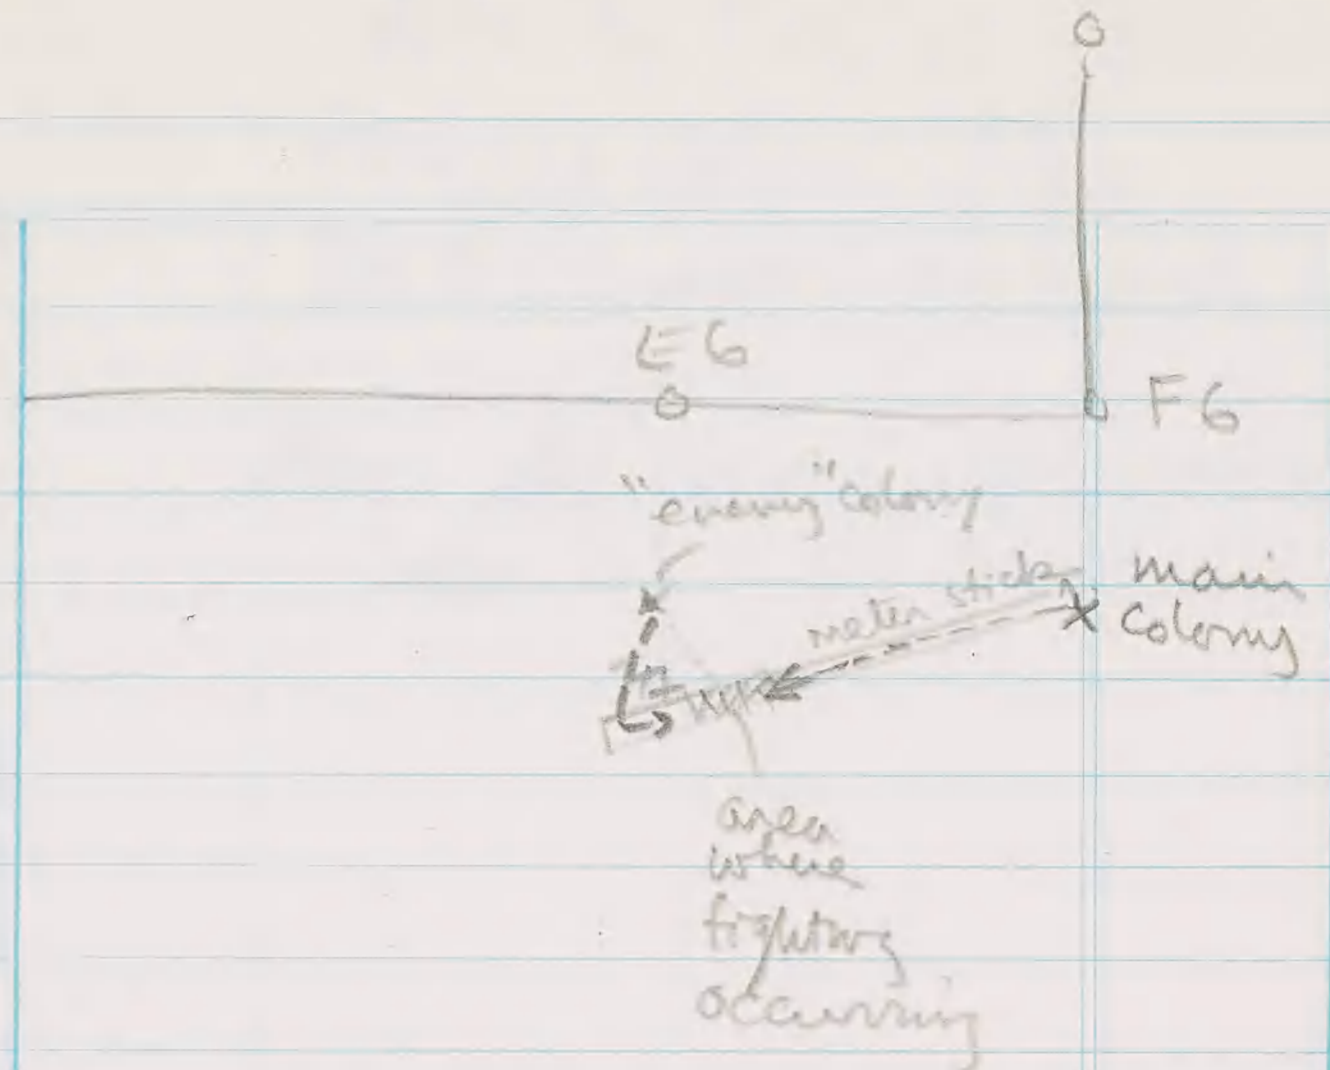 E6
F6
"enemy" colony
meter stick
main
colony
area
where
fighting
occurring